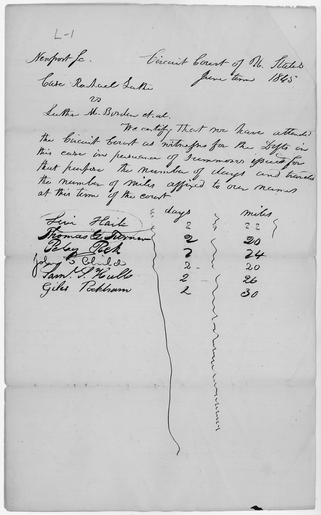 L-1
Newport Sc. Circuit Court of U. States
June term 1845
Case Rachael Luther
vs
Luther M. Borden et. al.
We certify that we have attended
the Circuit Court as witnesses for the Defts in
this case in pursuance of Summons issued for
that purpose the number of days and travels
the number of miles affixed to over names
at this term of the court
days miles
Levi 2 22
Thomas G. 2 20
Peleg 2 24
John Child 2 20
Saml. S. 2 26
Giles Peckham 2 30